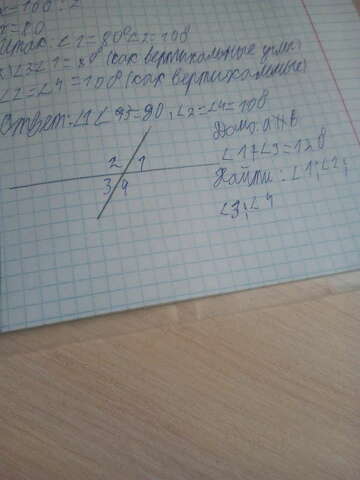 x=100:2
x=80
Итак: ∠1=80° ∠2=108
∠3∠1=80 (как вертикальные углы)
∠2=∠4=108 (как вертикальные)
Ответ: ∠1 ∠3=80, ∠2=∠4=108
Дано: a∦b
∠1+∠3=128
Найти: ∠1; ∠2;
∠3; ∠4
2 1
3 4